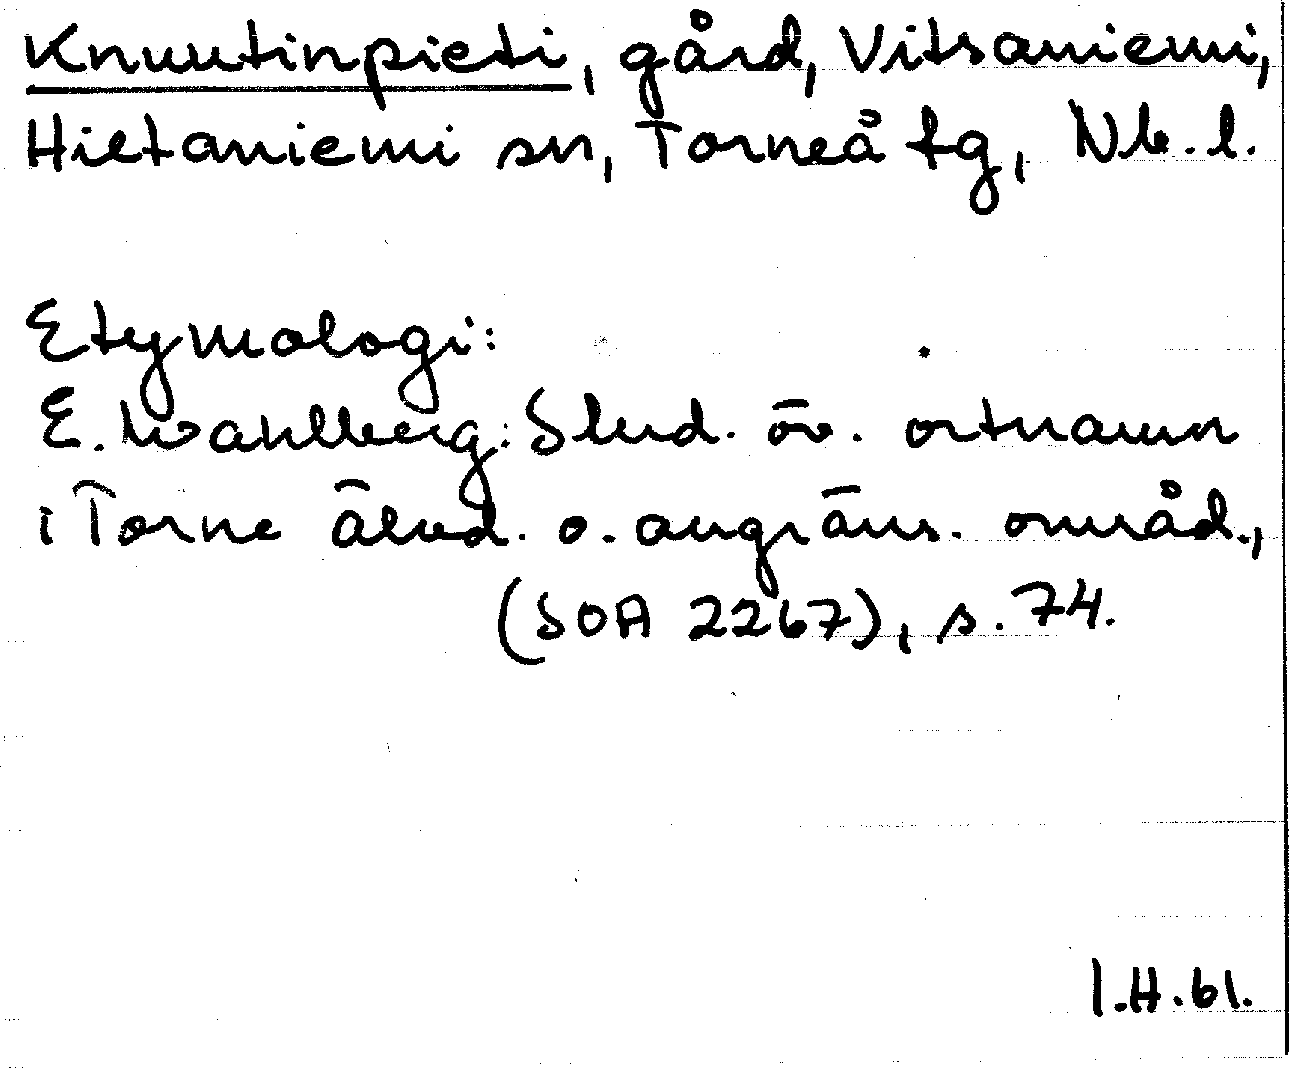 Knuutinpieti, gård, Vitsaniemi,
Hietaniemi sn, Torneå tg, Nb. l.
Etymologi:
E. Wahlberg: Stud. öv. ortnamn
i Torne älvd. o. angräns. områd.,
(SOA 2267), s. 74.
I.H. 61.